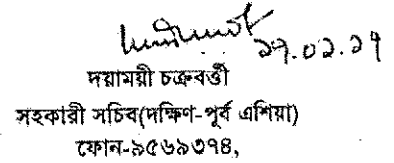 ২৭.০২.১৭
দয়াময়ী চক্রবর্ত্তী
সহকারী সচিব(দক্ষিণ-পূর্ব এশিয়া)
ফোন-৯৫৬৯৩৭৪,